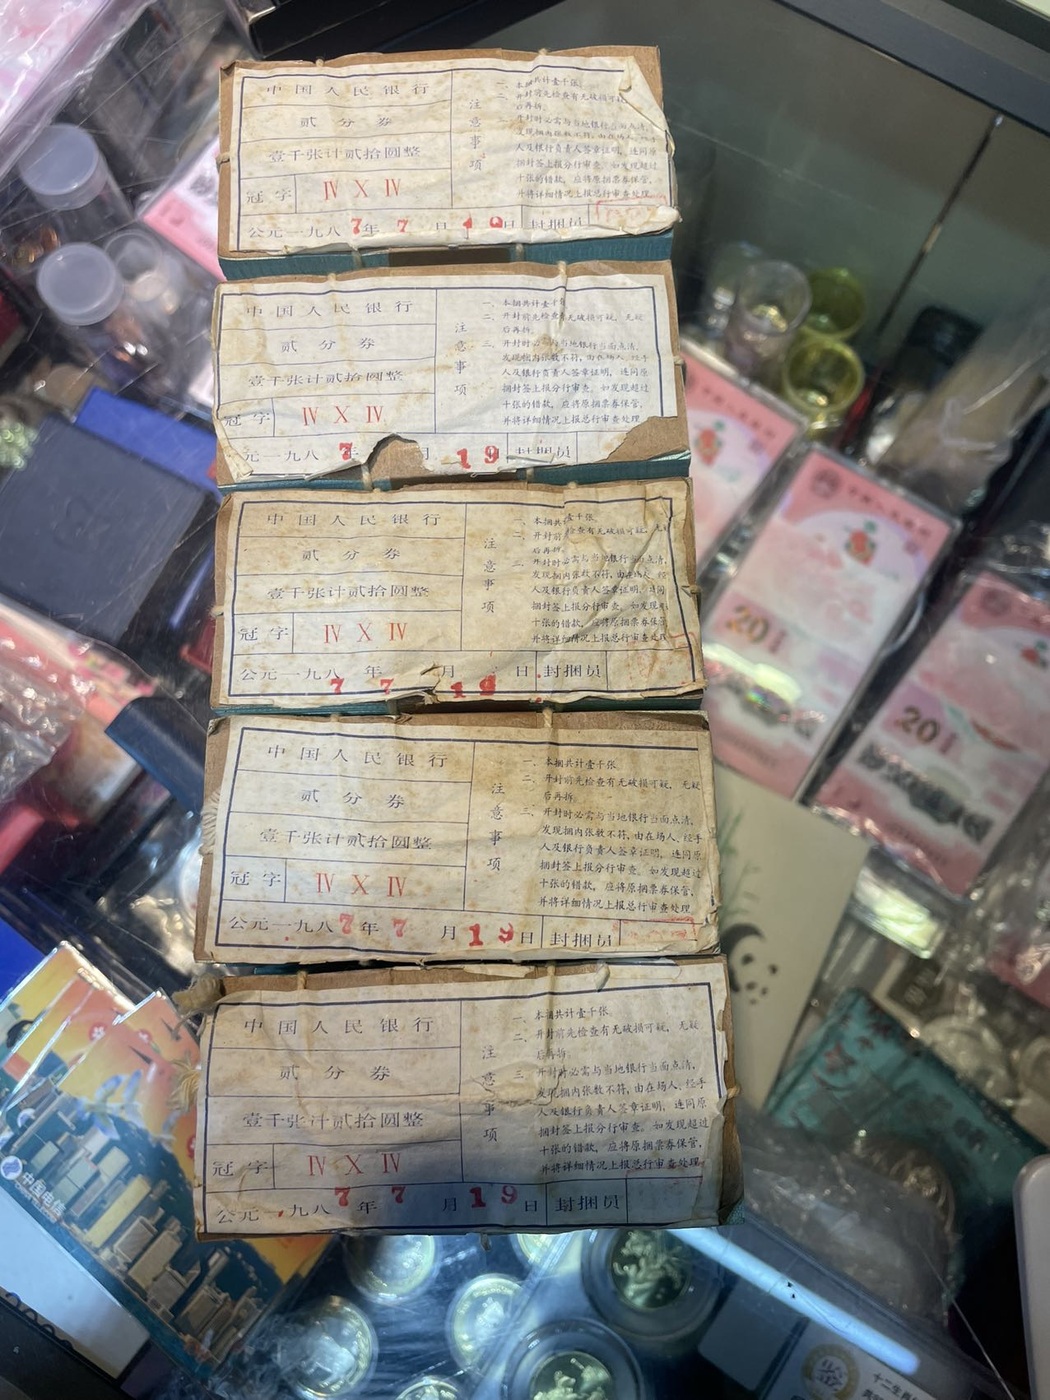 中国人民银行
贰分券
壹千张计贰拾圆整
冠字 Ⅳ X Ⅳ
公元一九八7年7月19日 封捆员
注意事项
一、本捆共计壹千张
二、开封前先检查有无破损可
后再拆
三、开封时必需与当地银行当面点清,
发现捆内张数不符,由在场人、经手
人及银行负责人签章证明,连同原
捆封签上报分行审查。如发现超过
十张的错款,应将原捆票券保管,
并将详细情况上报总行审查处理
中国人民银行
贰分券
壹千张计贰拾圆整
冠字 Ⅳ X Ⅳ
元一九八7 月19 封捆
注意事项
一、本捆共计壹千
二、开封前先检查有无破损可疑,无疑
后再拆
三、开封时必需与当地银行当面点清,
发现捆内张数不符,由在场人、经手
人及银行负责人签章证明,连同原
捆封签上报分行审查。如发现超过
十张的错款,应将原捆票券保管,
并将详细情况上报总行审查
中国人民银行
贰分券
壹千张计贰拾圆整
冠字 Ⅳ X Ⅳ
公元一九八7年7月19日 封捆员
注意事项
本捆共 壹千张
开封前 查有无破损可疑,无
后再拆
开封时必需与当地银行当面点清,
发现捆内张数不符,由在场人、经
人及银行负责人签章证明,连同
捆封签上报分行审查。如发现
十张的错款,应将原捆票券保
并将详细情况上报总行审查处
中国人民银行
贰分券
壹千张计贰拾圆整
冠字 Ⅳ X Ⅳ
公元一九八7年7月19日 封捆员
注意事项
一、本捆共计壹千张
二、开封前先检查有无破损可疑,无疑
后再拆
三、开封时必需与当地银行当面点清,
发现捆内张数不符,由在场人、经手
人及银行负责人签章证明,连同原
捆封签上报分行审查。如发现超过
十张的错款,应将原捆票券保管,
并将详细情况上报总行审查处理
中国人民银行
贰分券
壹千张计贰拾圆整
冠字 Ⅳ X Ⅳ
公元一九八7年7月19日 封捆员
注意事项
一、本捆共计壹千张
二、开封前先检查有无破损可疑,无疑
后再拆
三、开封时必需与当地银行当面点清,
发现捆内张数不符,由在场人、经手
人及银行负责人签章证明,连同原
捆封签上报分行审查。如发现超过
十张的错款,应将原捆票券保管,
并将详细情况上报总行审查处理
20
20
中国电信
十二生